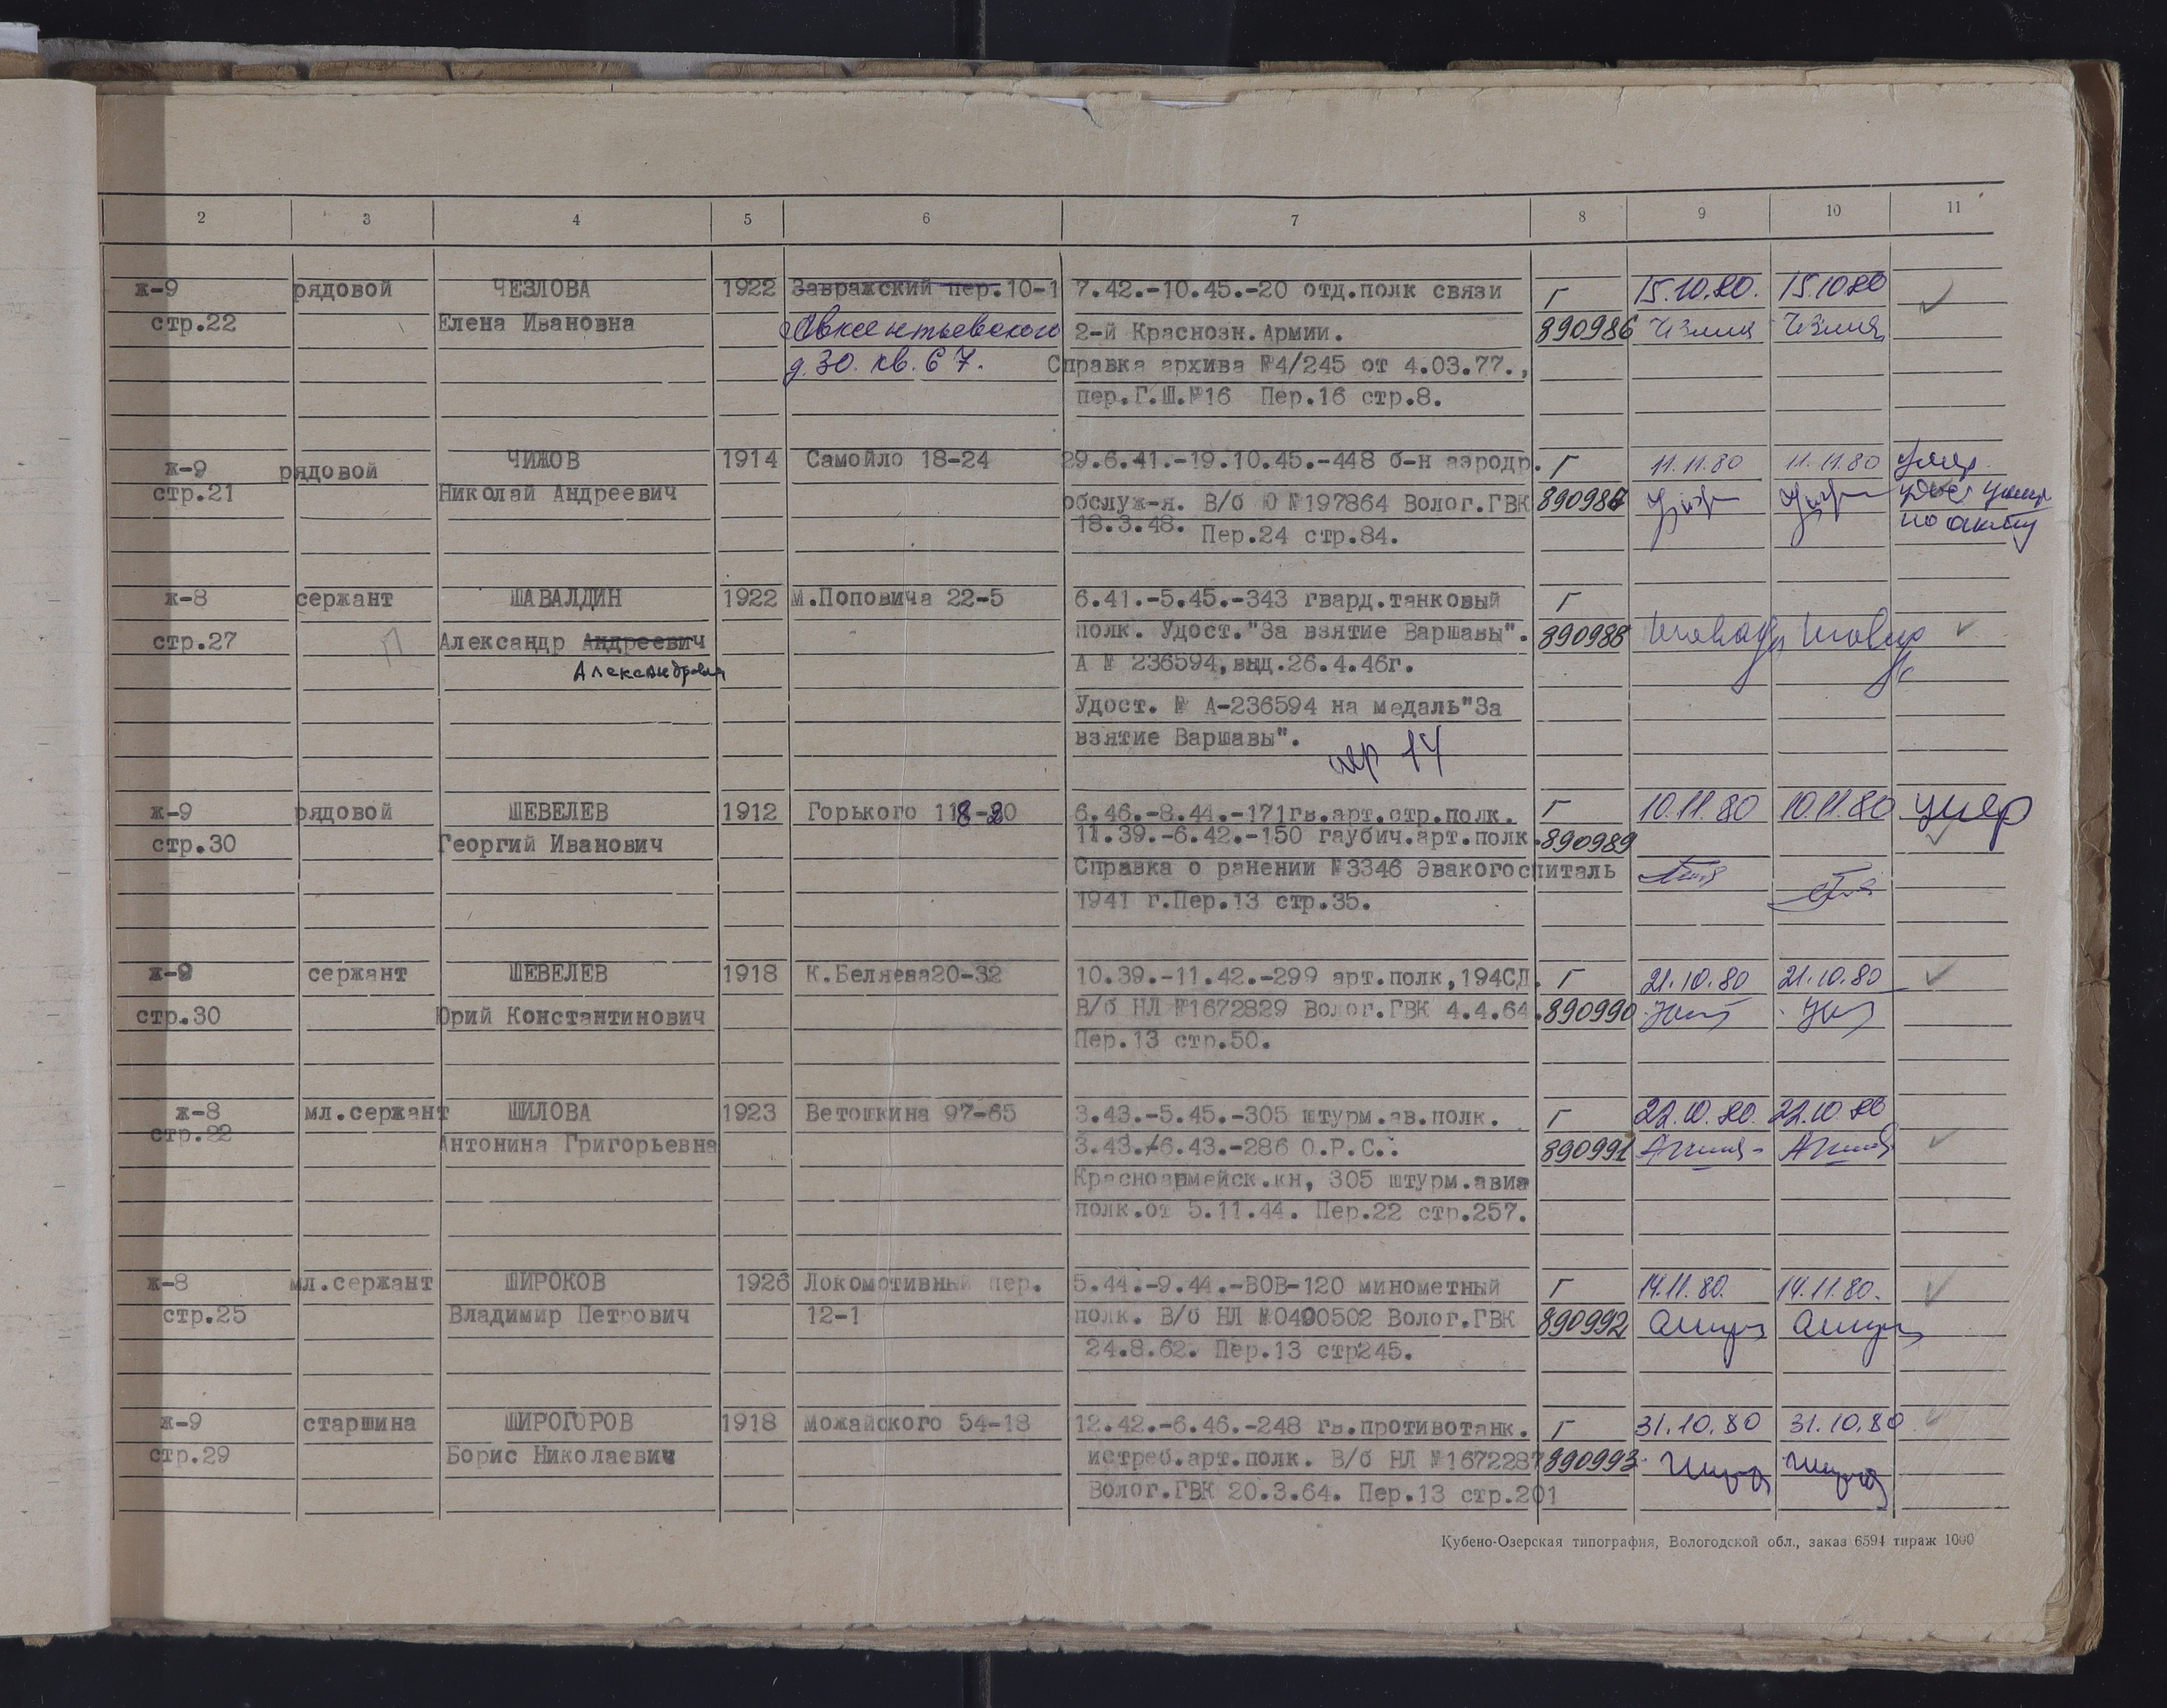 2 3 4 5 6 7 8 9 10 11
ж-9 рядовой ЧЕЗЛОВА 1922 Завражский пер.10-1 7.42.-10.45.-20 отд.полк связи Г 15.10.80. 15.10.80
стр.22 Елена Ивановна Авксентьевского 2-й Краснозн.Армии. 890986
д.30. кв. 67. Справка архива №4/245 от 4.03.77.,
пер.Г.Ш.№16 Пер.16 стр.8.
ж-9 рядовой ЧИЖОВ 1914 Самойло 18-24 29.6.41.-19.10.45.-448 б-н аэродр. Г 11.11.80 11.11.80 умер
стр.21 Николай Андреевич обслуж-я. В/б Ю №197864 Волог.ГВК 890987
18.3.48. Пер.24 стр.84. по акту
ж-8 сержант ШАВАЛДИН 1922 М.Поповича 22-5 6.41.-5.45.-343 гвард.танковый Г
стр.27 П Александр Андреевич полк. Удост."За взятие Варшавы". 890988
Александрович А № 236594,выд.26.4.46г.
Удост. № А-236594 на медаль"За
взятие Варшавы".
пер 14
ж-9 рядовой ШЕВЕЛЕВ 1912 Горького 118- 6.46.-8.44.-171гв.арт.стр.полк. Г 10.11.80 10.11.80 умер
стр.30 Георгий Иванович 11.39.-6.42.-150 гаубич.арт.полк. 890989
Справка о ранении №3346 Эвакогоспиталь
1941 г.Пер.13 стр.35.
ж-9 сержант ШЕВЕЛЕВ 1918 К.Беляева20-32 10.39.-11.42.-299 арт.полк,194СД. Г 21.10.80 21.10.80
стр.30 Юрий Константинович В/б НЛ №1672829 Волог.ГВК 4.4.64. 890990
Пер.13 стр.50.
ж-8 мл.сержант ШИЛОВА 1923 Ветошкина 97-65 3.43.-5.45.-305 штурм.ав.полк. Г 22.10.80. 22.10.80
стр.22 Антонина Григорьевна 3.43.-6.43.-286 О.Р.С.. 890991
Красноармейск.кн, 305 штурм.авиа
полк.от 5.11.44. Пер.22 стр.257.
ж-8 мл.сержант ШИРОКОВ 1926 Локомотивный пер. 5.44.-9.44.-ВОВ-120 минометный Г 14.11.80. 14.11.80.
стр.25 Владимир Петрович 12-1 полк. В/б НЛ №0400502 Волог.ГВК 890992
24.8.62. Пер.13 стр245.
ж-9 старшина ШИРОГОРОВ 1918 Можайского 54-18 12.42.-6.46.-248 гв.противотанк. Г 31.10.80 31.10.80
стр.29 Борис Николаевич истреб.арт.полк. В/б НЛ №1672287 890993
Волог.ГВК 20.3.64. Пер.13 стр.201
Кубено-Озерская типография, Вологодской обл., заказ 6594 тираж 1000